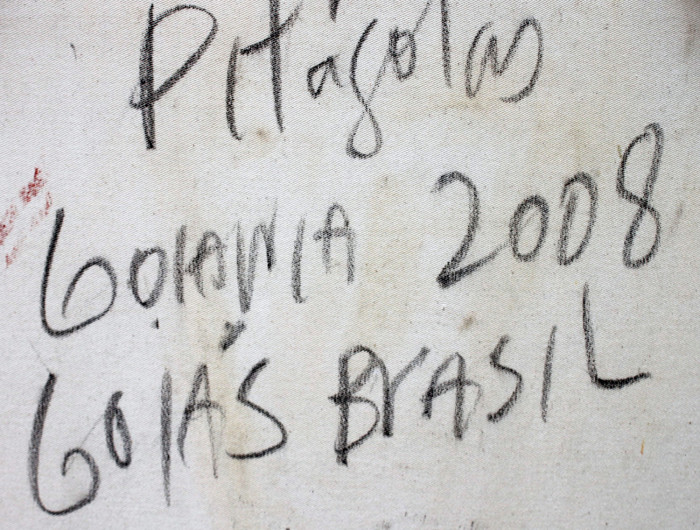 PItágoras
GOIANIA 2008
GOIÁS BRASIL